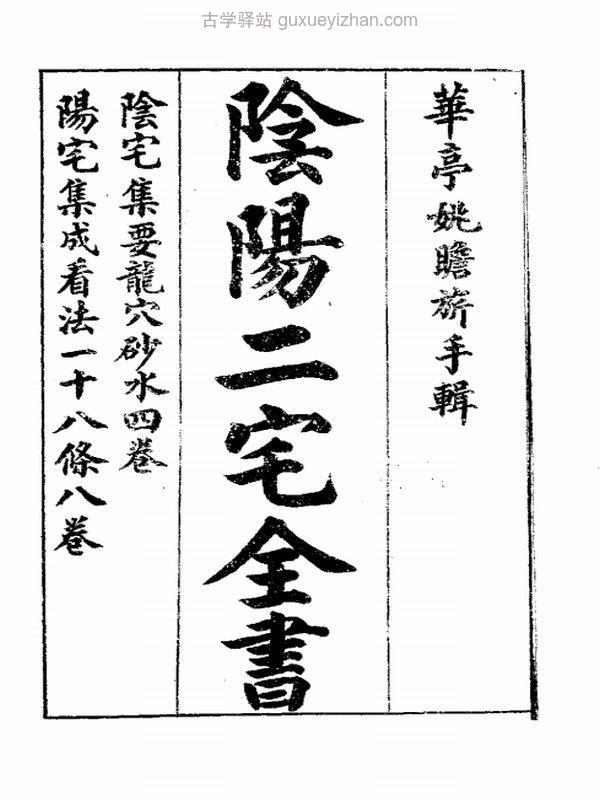 古学驿站 guxueyizhan.com
華亭姚瞻旂手輯
陰陽二宅全書
陰宅集要龍穴砂水四卷
陽宅集成看法一十八條八卷